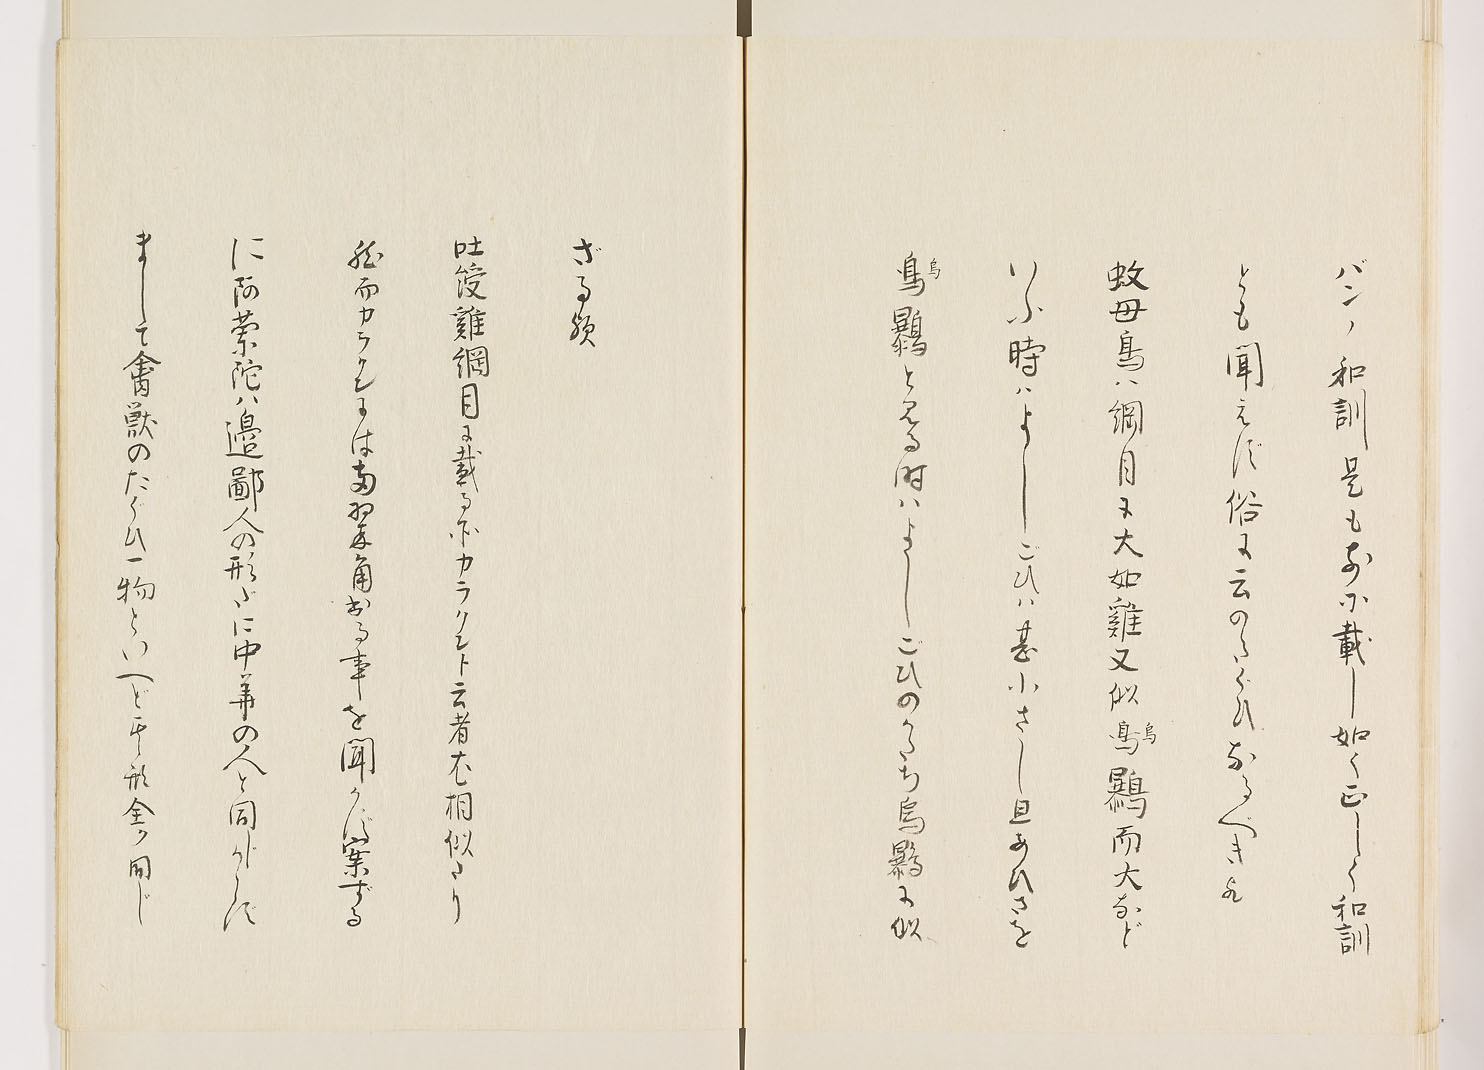 バンノ和訓是も前に載し如く正しく和訓
とも聞えず俗に云のたぐひなるべき歟
蚊母鳥ハ綱目に大如雞又似鳥烏鷃而大など
いふ時ハよしごひハ甚小さし且あひさを
鳥烏鷃と見る時ハよしごひのかたち烏鷃に似
ざる歟
吐綬雞綱目に載る所カラクント云者尤相似たり
然而カラクンには両翠角出る事を聞かず案ずる
に阿蘭陀ハ邉鄙人の形だに中華の人と同じからず
まして禽獣のたぐひ一物といへど其形全ク同じ